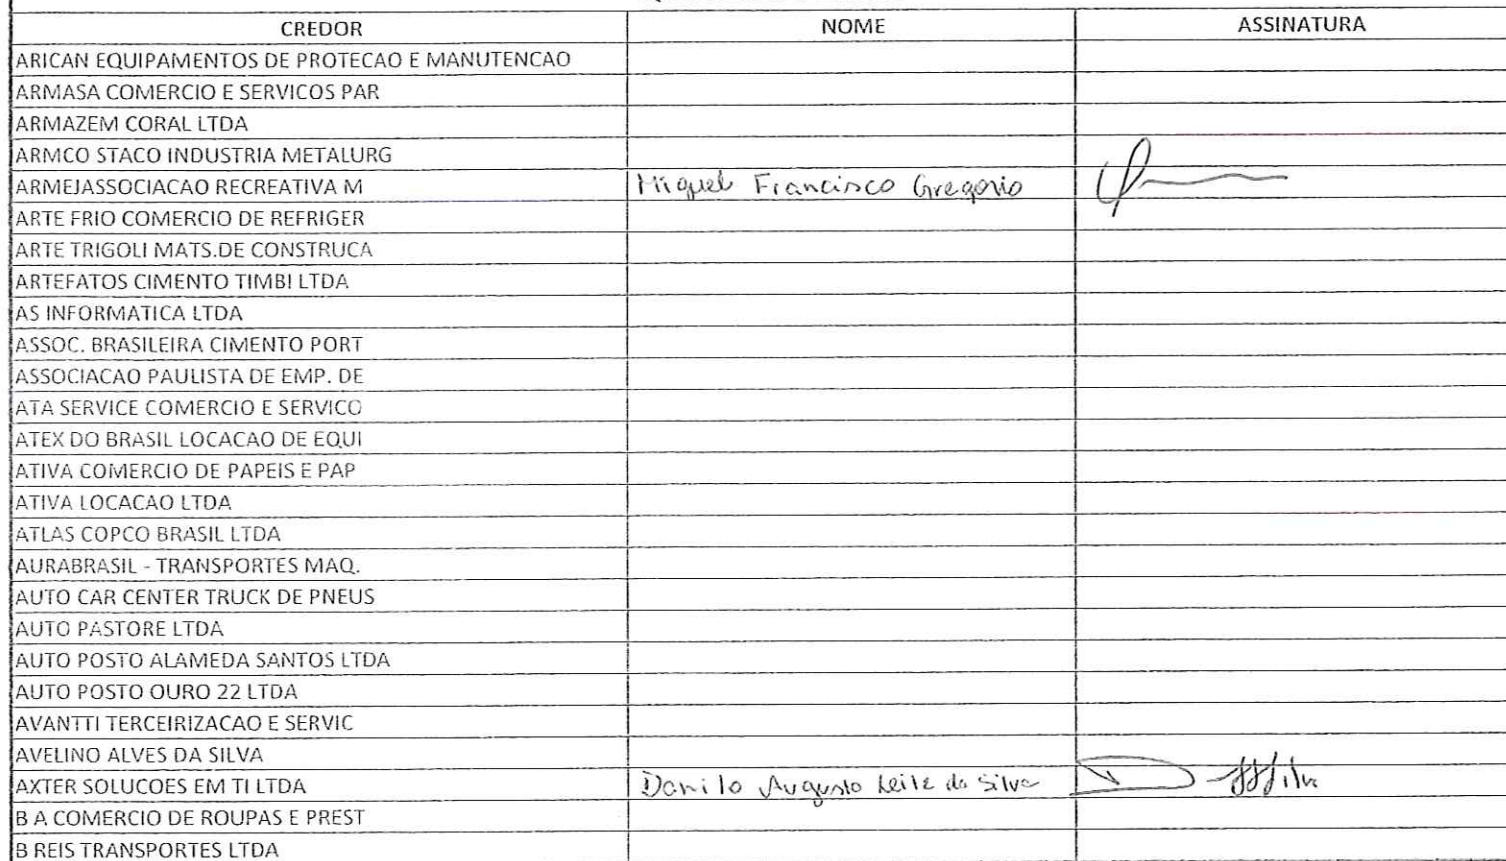 CREDOR NOME ASSINATURA
ARICAN EQUIPAMENTOS DE PROTECAO E MANUTENCAO
ARMASA COMERCIO E SERVICOS PAR
ARMAZEM CORAL LTDA
ARMCO STACO INDUSTRIA METALURG
ARMEJASSOCIACAO RECREATIVA M Miguel Francisco Gregorio
ARTE FRIO COMERCIO DE REFRIGER
ARTE TRIGOLI MATS.DE CONSTRUCA
ARTEFATOS CIMENTO TIMBI LTDA
AS INFORMATICA LTDA
ASSOC. BRASILEIRA CIMENTO PORT
ASSOCIACAO PAULISTA DE EMP. DE
ATA SERVICE COMERCIO E SERVICO
ATEX DO BRASIL LOCACAO DE EQUI
ATIVA COMERCIO DE PAPEIS E PAP
ATIVA LOCACAO LTDA
ATLAS COPCO BRASIL LTDA
AURABRASIL - TRANSPORTES MAQ.
AUTO CAR CENTER TRUCK DE PNEUS
AUTO PASTORE LTDA
AUTO POSTO ALAMEDA SANTOS LTDA
AUTO POSTO OURO 22 LTDA
AVANTTI TERCEIRIZACAO E SERVIC
AVELINO ALVES DA SILVA
AXTER SOLUCOES EM TI LTDA Danilo Augusto Leite da Silva
B A COMERCIO DE ROUPAS E PREST
B REIS TRANSPORTES LTDA